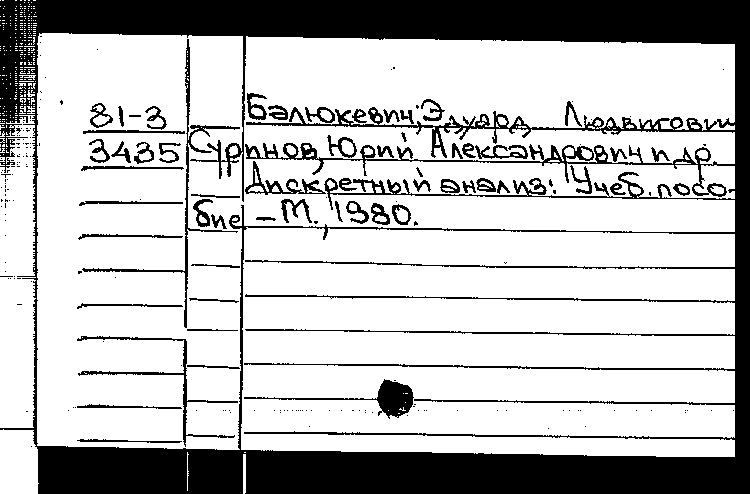 81-3 Балюкевич, Эдуард Людвигович
3435 Суринов, Юрий Александрович и др.
Дискретный анализ: Учеб. посо-
бие – М., 1980.